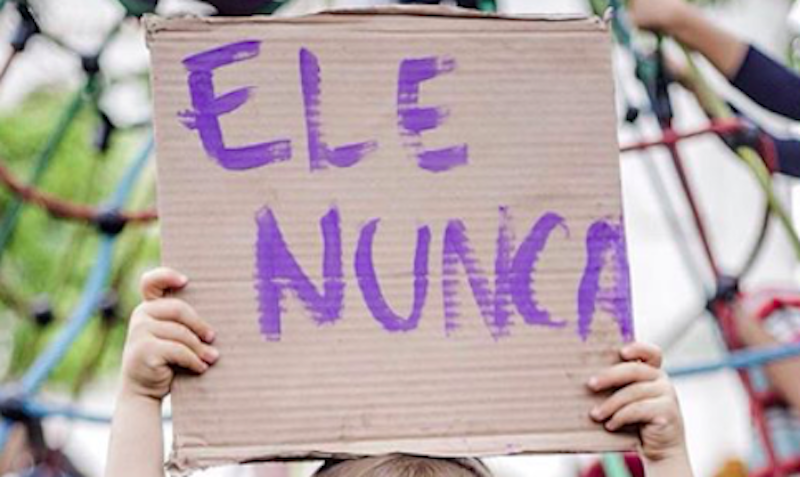 ELE
NUNCA